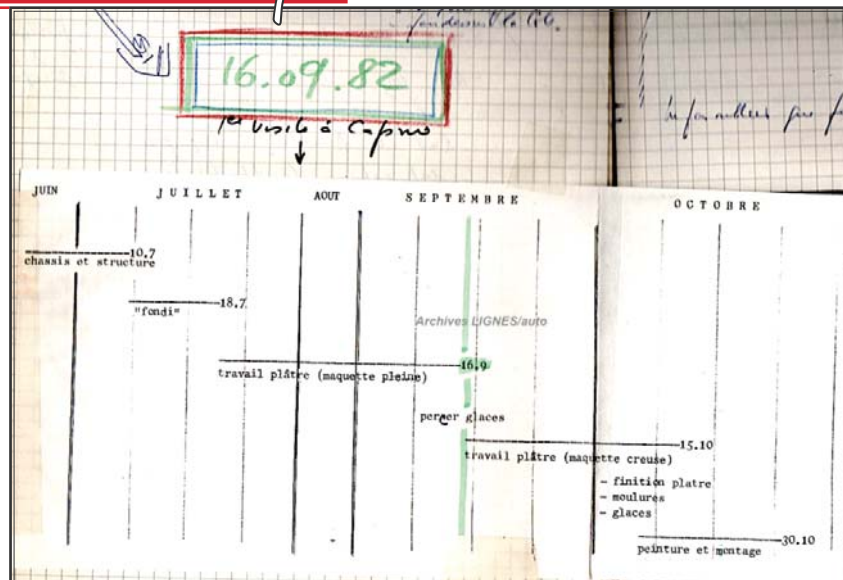 16.09.82
1ère visite à Caprno
JUIN JUILLET AOUT SEPTEMBRE OCTOBRE
10.7
chassis et structure
18.7
"fondi"
Archives LIGNES/auto
16.9
travail plâtre (maquette pleine)
percer glaces
15.10
travail plâtre (maquette creuse)
- finition platre
- moulures
- glaces
30.10
peinture et montage